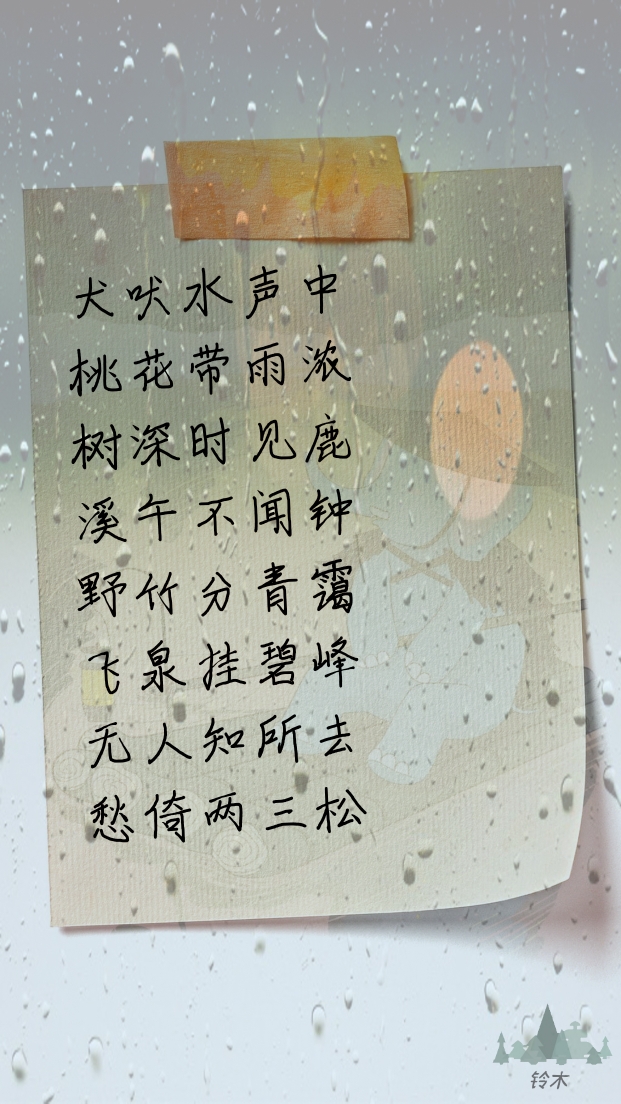 犬吠水声中
桃花带雨浓
树深时见鹿
溪午不闻钟
野竹分青霭
飞泉挂碧峰
无人知所去
愁倚两三松
铃木